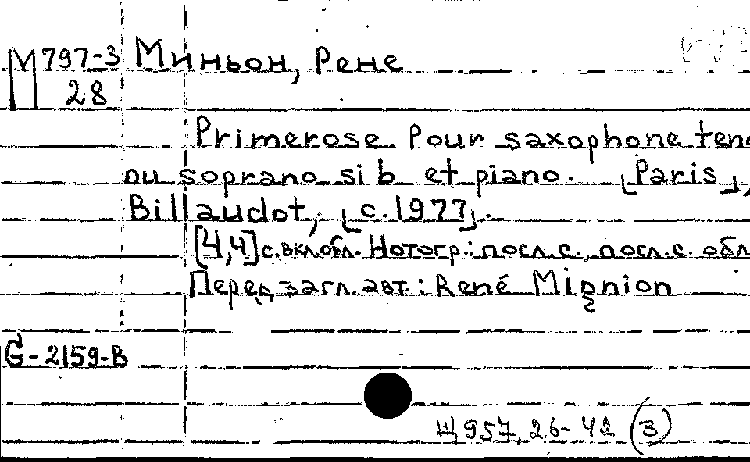 М 797-3 Миньон, Рене
28
Primerose. Pour saxophone teno
ou soprano si b et piano. [Paris],
Billaudot, [c. 1977].
[4,4] с. вкл. обл. Нотогр.: посл. с., посл. с. обл
Перед загл. авт.: René Mignion
G-2159-В
Щ957.26-42 (3)